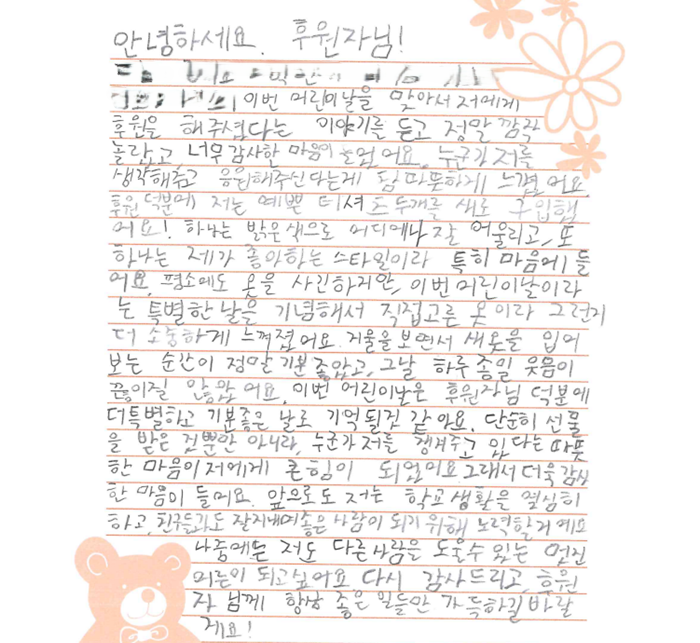 안녕하세요. 후원자님!
이번 어린이날을 맞아서 저에게
후원을 해주셨다는 이야기를 듣고 정말 깜짝
놀랐고, 너무 감사한 마음이 들었어요. 누군가 저를
생각해주고 응원해주신다는게 참 따뜻하게 느꼈어요.
후원 덕분에 저는 예쁜 티셔츠 두개를 새로 구입했
어요! 하나는 밝은색으로 어디에나 잘 어울리고, 또
하나는 제가 좋아하는 스타일이라 특히 마음에 들
어요. 평소에도 옷을 사긴하지만, 이번 어린이날이라
는 특별한 날을 기념해서 직접고른 옷이라 그런지
더 소중하게 느껴졌어요. 거울을 보면서 새옷을 입어
보는 순간이 정말 기분 좋았고, 그날 하루종일 웃음이
끊이질 않았어요. 이번 어린이날은 후원자님 덕분에
더특별하고 기분좋은 날로 기억될것 같아요. 단순히 선물
을 받은 것뿐만 아니라, 누군가 저를 챙겨주고 있다는 따뜻
한 마음이 저에게 큰힘이 되었어요 그래서 더욱 감사
한 마음이 들어요. 앞으로도 저는 학교생활을 열심히
하고, 친구들과도 잘지내며 좋은 사람이 되기 위해 노력할거예요
나중에는 저도 다른사람을 도울수 있는 멋진
어른이 되고싶어요 다시 감사드리고, 후원
자 님께 항상 좋은 일들만 가득하길 바랄
게요!